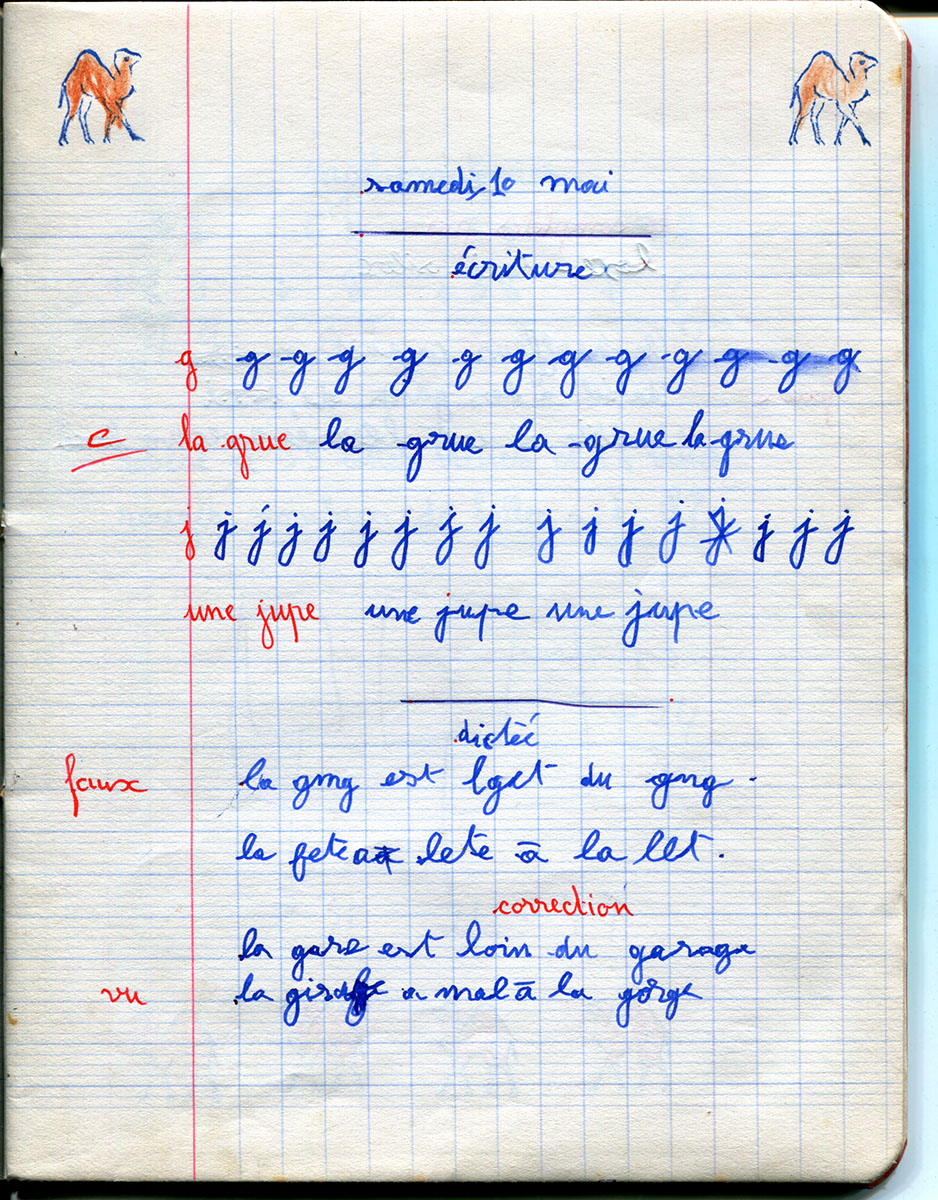 samedi 10 mai
écriture
g g g g g g g g g g g g g
c la grue la grue la grue la grue
j j j j j j j j j j j j j j j j
une jupe une jupe une jupe
dictéé
faux la gmg est lgct du gmg .
la fete a lete à la llt .
correction
la gare est loin du garage
vu la girafe a mal à la gorge